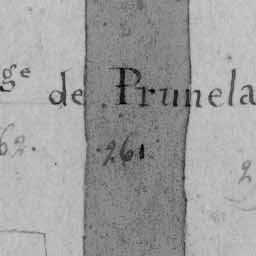 ge de Prunela
62. 261
2